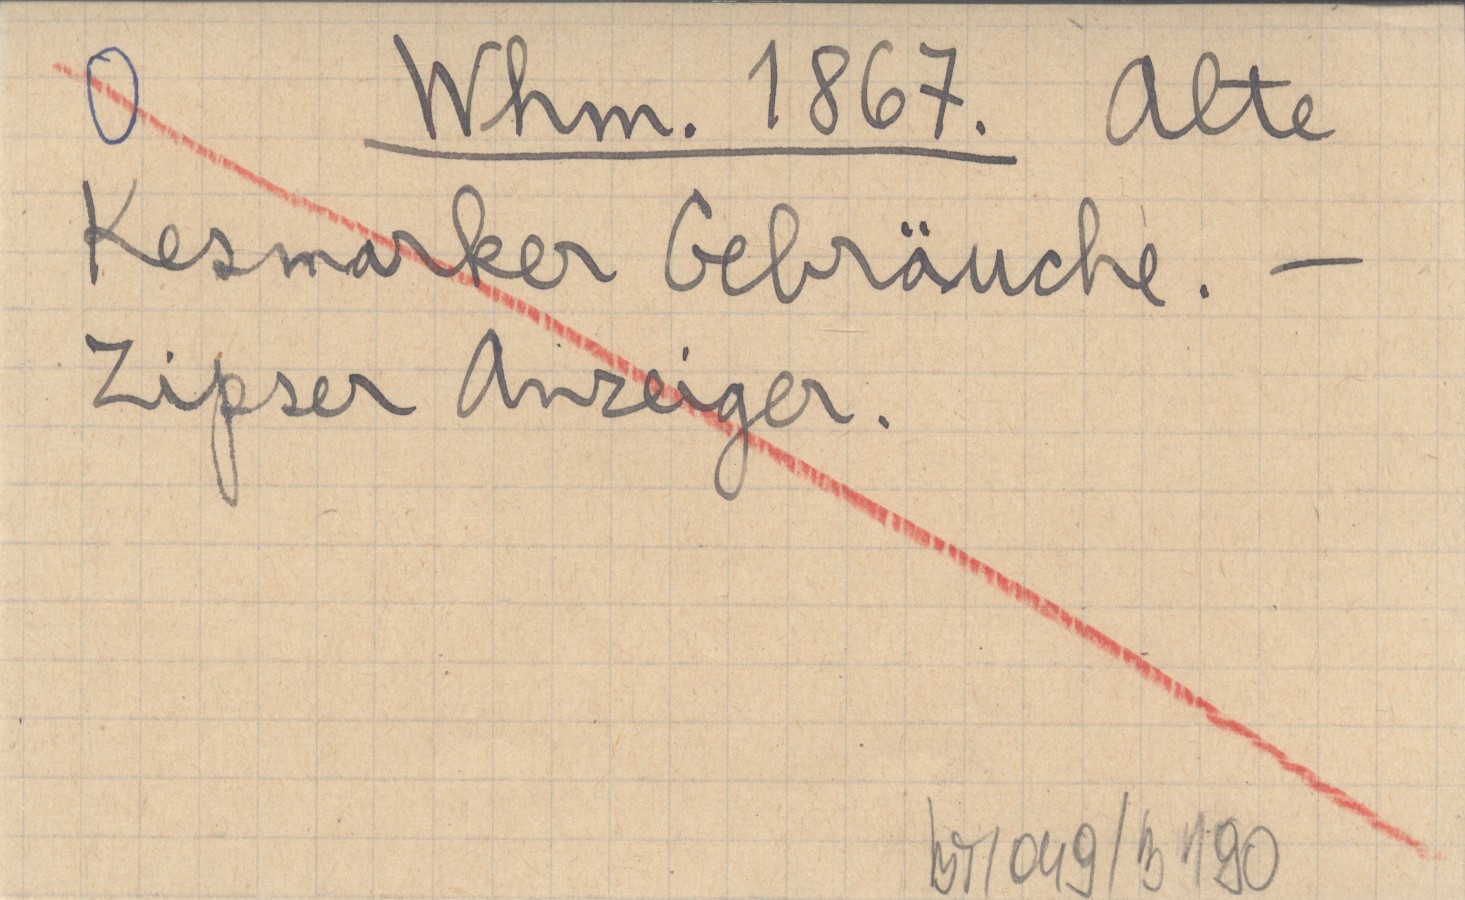 0 Whm. 1867. Alte
Kesmarker Gebräuche. —
Zipser Anzeiger.